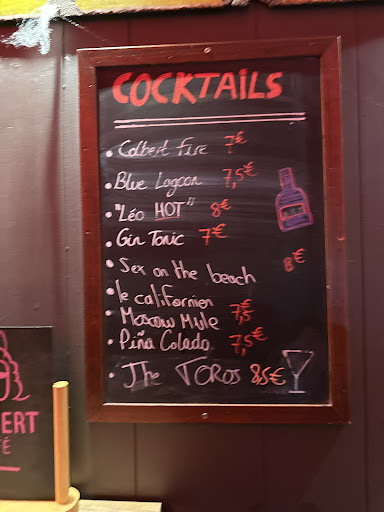 COCKTAILS
• Colbert Fire 7€
• Blue Lagoon 7,5€
• "Léo HOT" 8€
• Gin Tonic 7€
• Sex on the beach 8€
• le californien
• Moscow Mule 7,5€
• Piña Colada. 7,5€
• The TOROS 8,5€
BERT
É